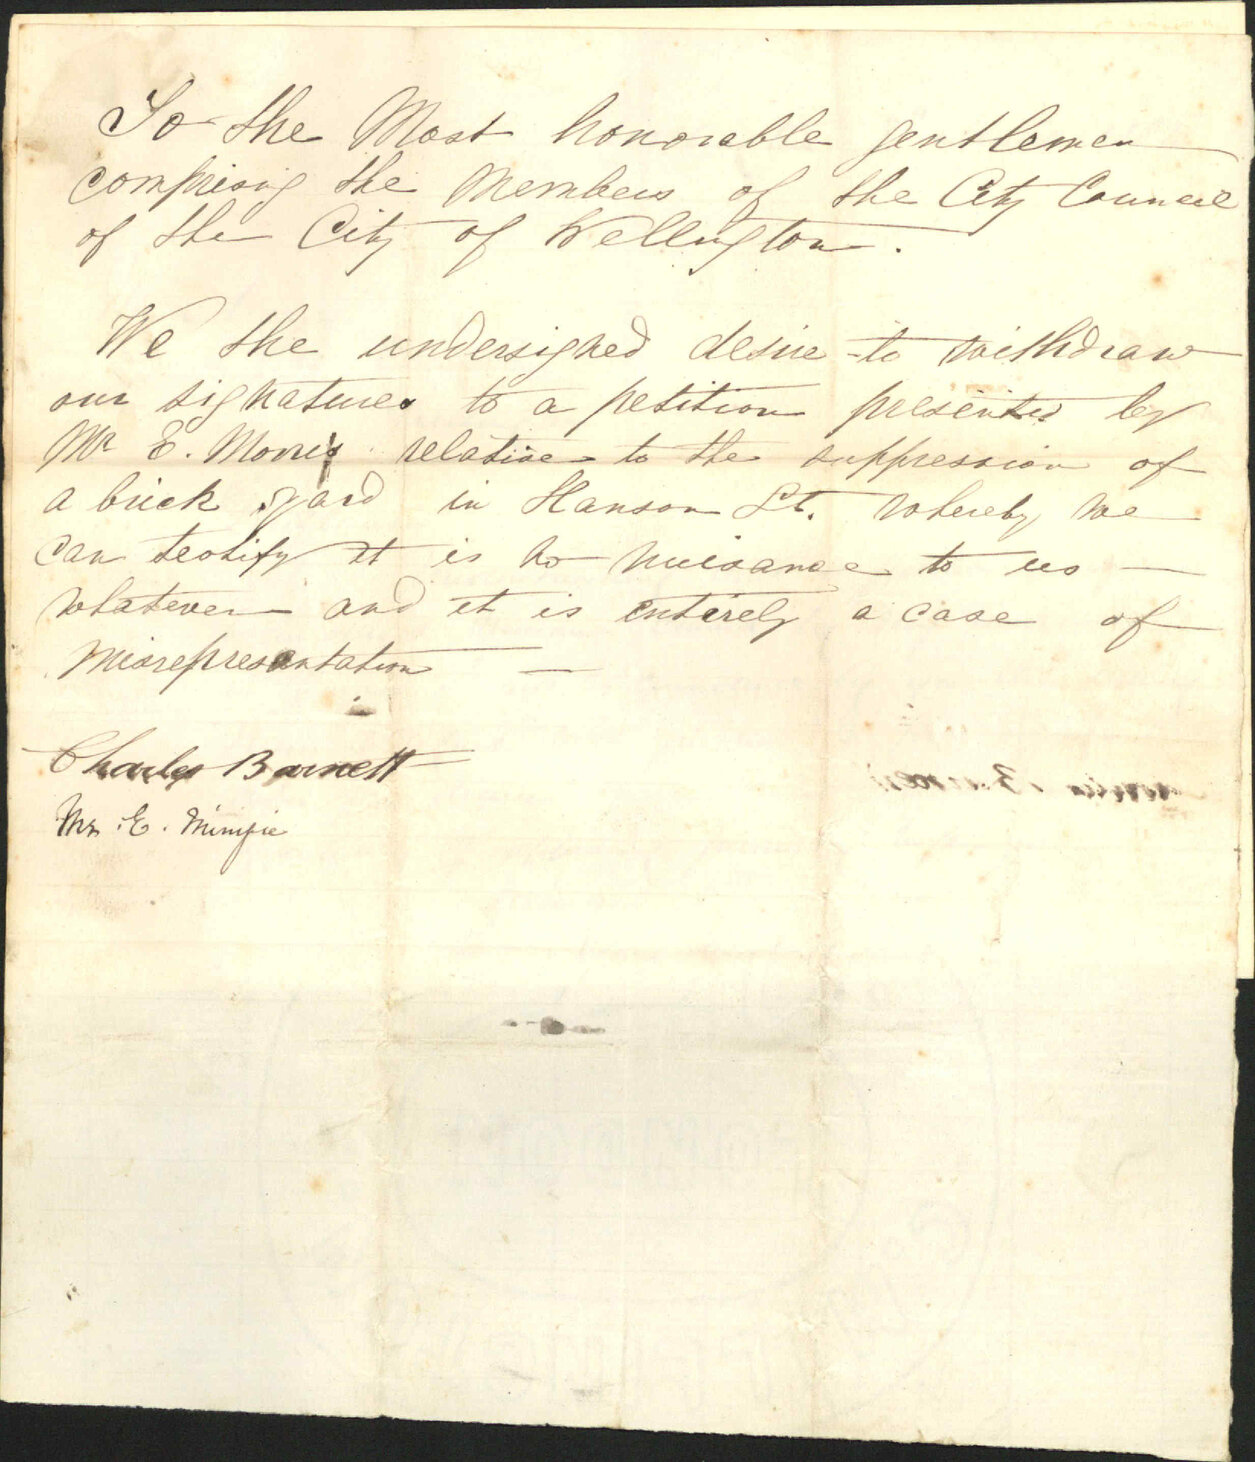 To the Most honorable gentlemen
comprising the Members of the City Council
of the City of Wellington.
We the undersigned desire to withdraw
our signatures to a petition presented by
Mr E. Morris relative to the suppression of
a brick yard in Hanson St. whereby we
can testify it is no nuisance to us —
whatever and it is entirely a case of
Misrepresentation —
Charles Barnett
E.